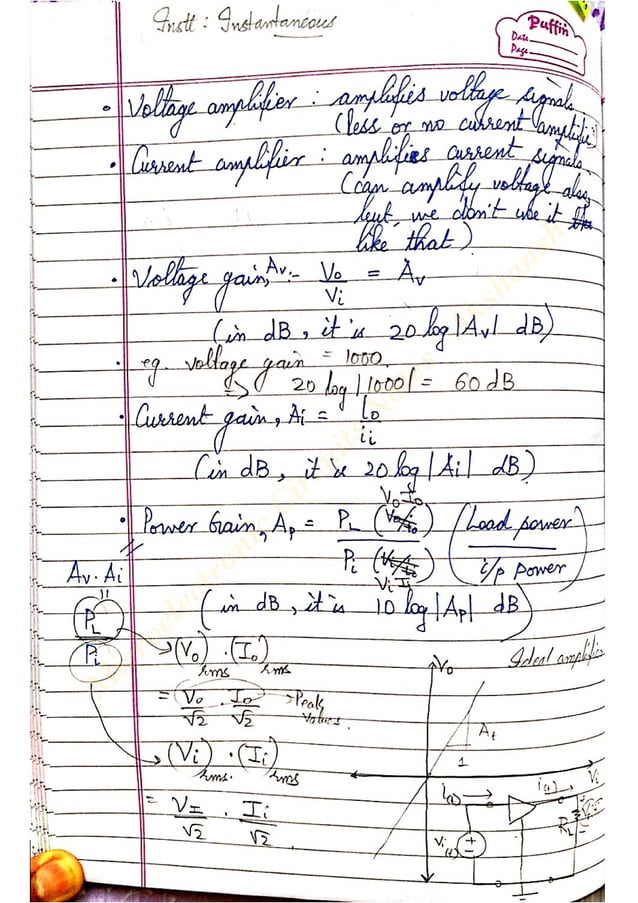 Instt : Instantaneous
Puffin
Date
Page
• Voltage amplifier : amplifies voltage signals
(less or no current amplifi
• Current amplifier : amplifies current signals.
(can amplify voltage also,
but we don't use it
like that)
• Voltage gain, Av :- Vo/Vi = Av
(in dB, it is 20 log |Av| dB)
• eg. voltage gain = 1000.
=> 20 log |1000| = 60 dB
• Current gain, Ai = io/ii
(in dB, it is 20 log |Ai| dB)
• Power Gain, Ap = PL (Vo Io) / Pi (Vi Ii) (Load power / i/p power)
Av . Ai
=
PL / Pi
(in dB, it is 10 log |Ap| dB)
→ (Vo)rms . (Io)rms
= Vo/√2 . Io/√2 → Peak values.
→ (Vi)rms. . (Ii)rms
= VI/√2 . Ii/√2
Vo
Ideal amplifier
At
1
Vi
i(t)
i(t)
Vi(t)
+
−
RL